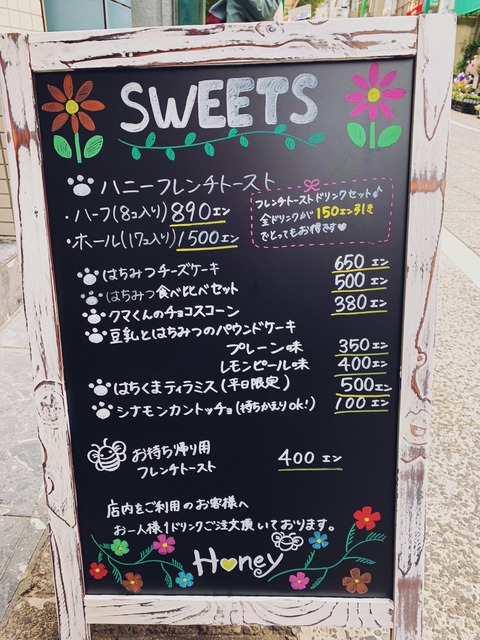 SWEETS
ハニーフレンチトースト
・ハーフ(8コ入り) 890エン
・ホール(17コ入り) 1500エン
フレンチトーストドリンクセット♪
全ドリンクが150エン引き
でとってもお得です♡
はちみつチーズケーキ 650エン
はちみつ食べ比べセット 500エン
クマくんのチョコスコーン 380エン
豆乳とはちみつのパウンドケーキ
プレーン味 350エン
レモンピール味 400エン
はちくまティラミス(平日限定) 500エン
シナモンカントッチョ(持ちかえりok!) 100エン
お持ち帰り用
フレンチトースト 400エン
店内をご利用のお客様へ
お一人様1ドリンクご注文頂いております。
Honey